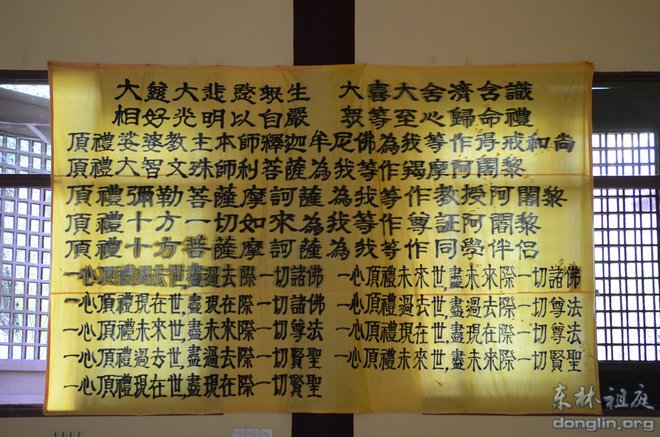 大慈大悲愍衆生 大喜大舍濟含識
相好光明以自嚴 衆等至心歸命禮
頂禮娑婆教主本師釋迦牟尼佛為我等作得戒和尚
頂禮大智文殊師利菩薩為我等作羯摩阿闍黎
頂禮彌勒菩薩摩訶薩為我等作教授阿闍黎
頂禮十方一切如來為我等作尊証阿闍黎
頂禮十方菩薩摩訶薩為我等作同學伴侶
一心頂禮過去世,盡過去際一切諸佛
一心頂禮現在世,盡現在際一切諸佛
一心頂禮未來世,盡未來際一切尊法
一心頂禮過去世,盡過去際一切賢聖
一心頂禮現在世,盡現在際一切賢聖
一心頂禮未來世,盡未來際一切諸佛
一心頂禮過去世,盡過去際一切尊法
一心頂禮現在世,盡現在際一切尊法
一心頂禮未來世,盡未來際一切賢聖
东林祖庭
donglin.org